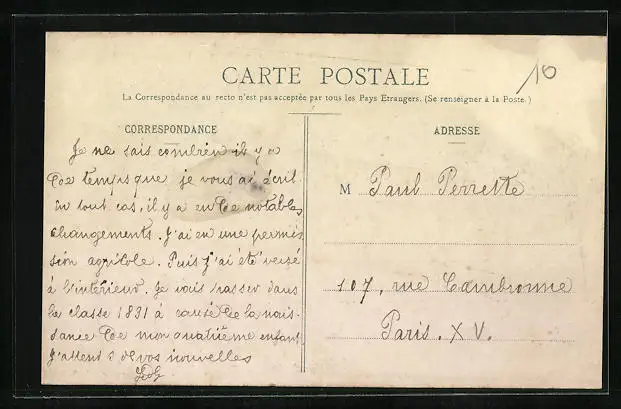 10
CARTE POSTALE
La Correspondance au recto n'est pas acceptée par tous les Pays Etrangers. (Se renseigner à la Poste.)
CORRESPONDANCE
Je ne sais combien il y a
de temps que je vous ai écrit.
En tout cas, il y a eu de notables
changements. J'ai eu une permis
sion agricole. Puis j'ai été versé
à l'intérieur. Je vais passer dans
la classe 1891 à cause de la nais-
sance de mon quatrième enfant
J'attends de vos nouvelles
ADRESSE
M Paul Perrette
107, rue Cambronne
Paris. XV.